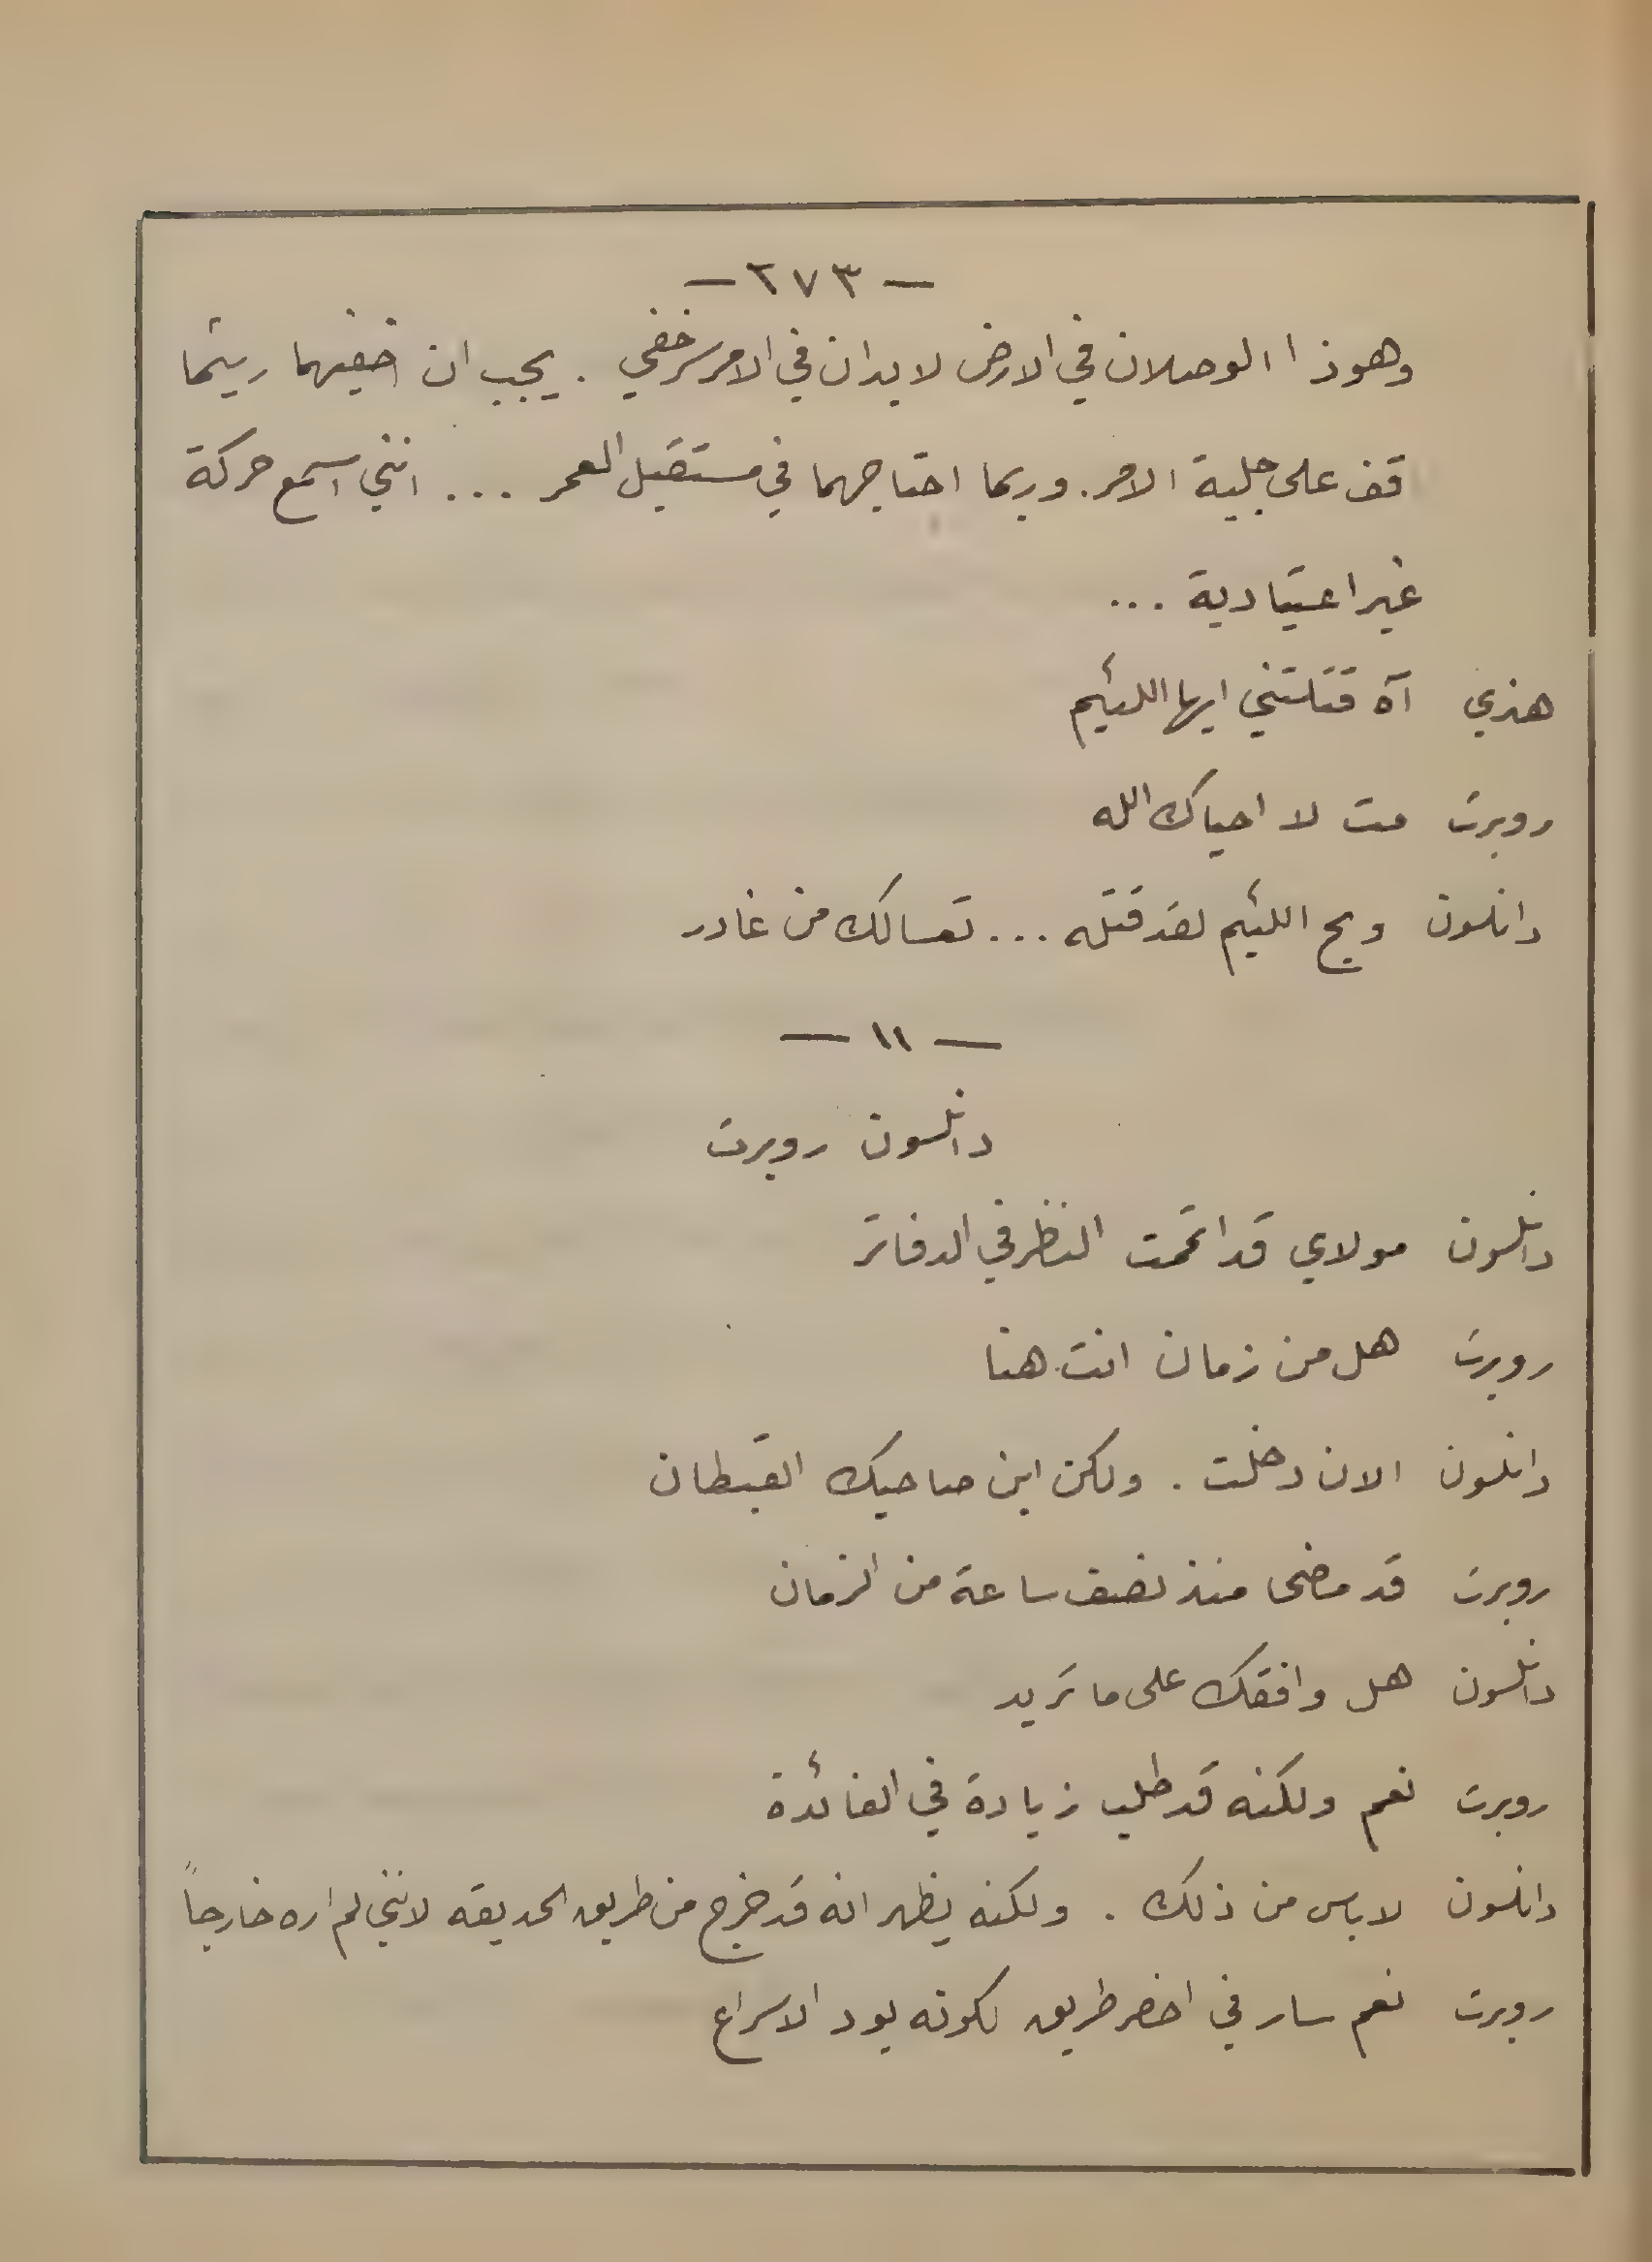 — ٢٧٣ —
وهوذا الوصلان في الارض لابد ان في الامر سر خفي . يجب ان اخفيهما ريثما
اقف على جلية الامر . وربما احتاجهما في مستقبل العمر ... انني اسمع حركة
غير اعتيادية ...
هنري آه قتلتني ايها اللئيم
روبرت مت لا احياك الله
دانلسون ويح اللئيم لقد قتله ... تعسا لك من غادر
— ١١ —
دانلسون روبرت
دانلسون مولاي قد اتممت النظر في الدفاتر
روبرت هل من زمان انت هنا
دانلسون الان دخلت . ولكن اين صاحبك القبطان
روبرت قد مضى منذ نصف ساعة من الزمان
دانلسون هل وافقك على ما تريد
روبرت نعم ولكنه قد طلب زيادة في الفائدة
دانلسون لا باس من ذلك . ولكنه يظهر انه قد خرج من طريق الحديقه لانني لم اره خارجاً
روبرت نعم سار في اخصر طريق لكونه يود الاسراع